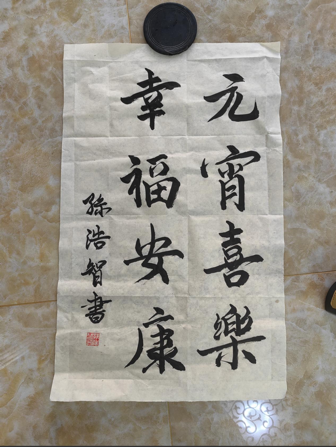 元宵喜樂
幸福安康
孫浩智書